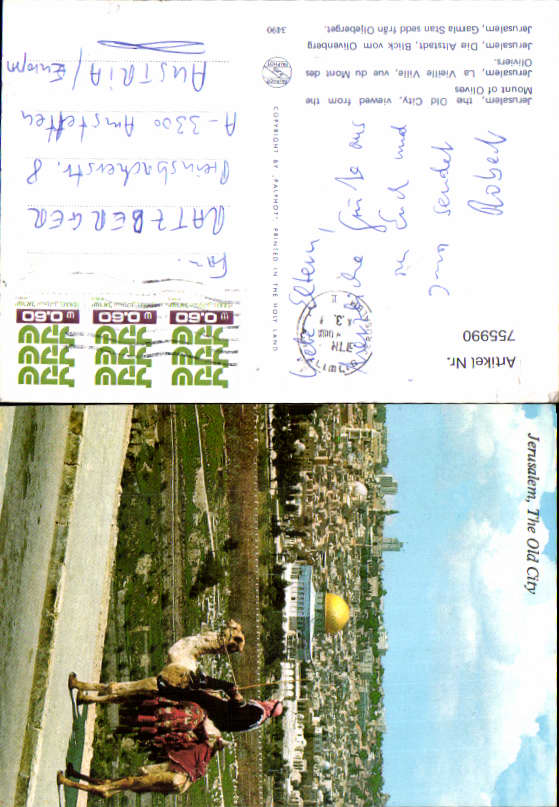 Jerusalem, the Old City, viewed from the
Mount of Olives
Jerusalem, La Vieille Ville, vue du Mont des
Oliviers.
Jerusalem, Die Altstadt, Blick vom Olivenberg
Jerusalem, Gamla Stan sedd från Oljeberget.
3490
COPYRIGHT BY "PALPHOT" PRINTED IN THE HOLY LAND
Liebe Eltern,
Grüße aus
und
sendet
Robert
Fa.
RATZBERGER
Preinsbacherstr. 8
A-3300 Amstetten
AUSTRIA / Europa
0.60
0.60
0.60
Artikel Nr.
755990
Jerusalem, The Old City